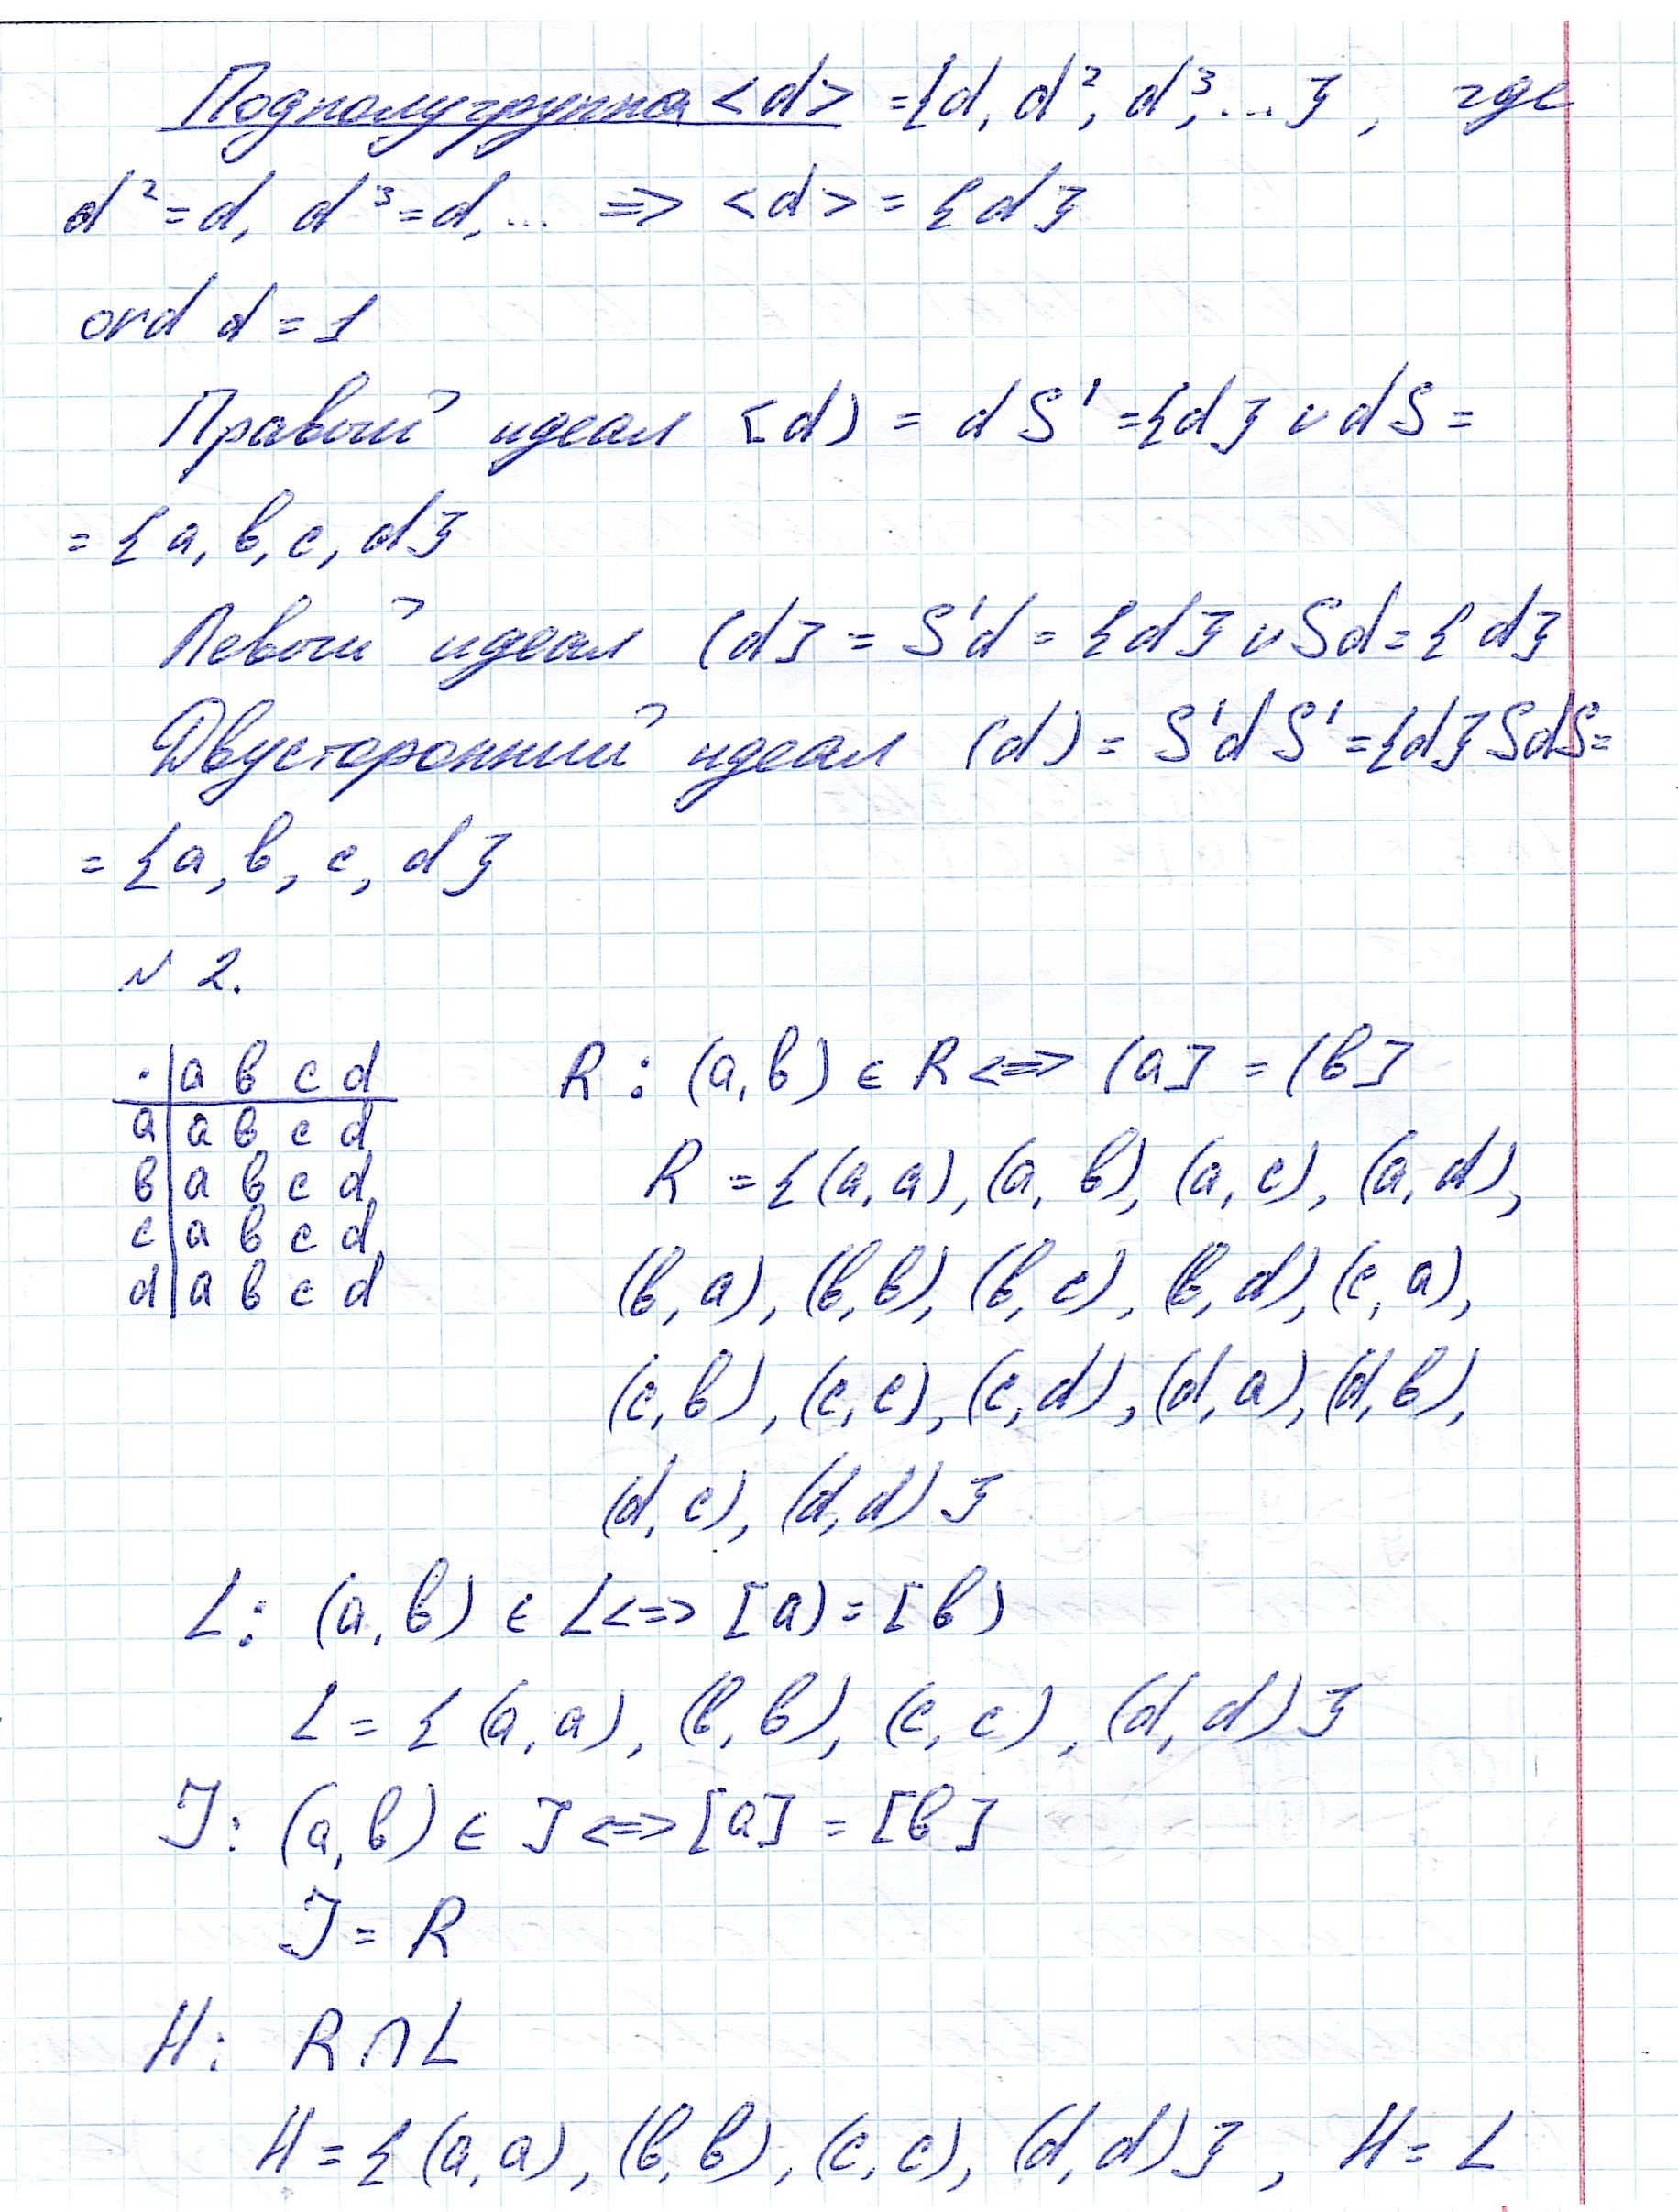 Подполугруппа <d> = {d, d², d³, ...}, где
d² = d, d³ = d, ... => <d> = {d}
ord d = 1
Правый идеал [d) = dS¹ = {d} ∪ dS =
= {a, b, c, d}
Левый идеал (d] = S¹d = {d} ∪ Sd = {d}
Двусторонний идеал (d) = S¹dS¹ = {d} SdS =
= {a, b, c, d}
№ 2.
· | a b c d
a | a b c d
b | a b c d
c | a b c d
d | a b c d
R: (a, b) ∈ R <=> (a] = (b]
R = {(a, a), (a, b), (a, c), (a, d),
(b, a), (b, b), (b, c), (b, d), (c, a),
(c, b), (c, c), (c, d), (d, a), (d, b),
(d, c), (d, d)}
L: (a, b) ∈ L <=> [a) = [b)
L = {(a, a), (b, b), (c, c), (d, d)}
J: (a, b) ∈ J <=> [a] = [b]
J = R
H: R ∩ L
H = {(a, a), (b, b), (c, c), (d, d)}, H = L